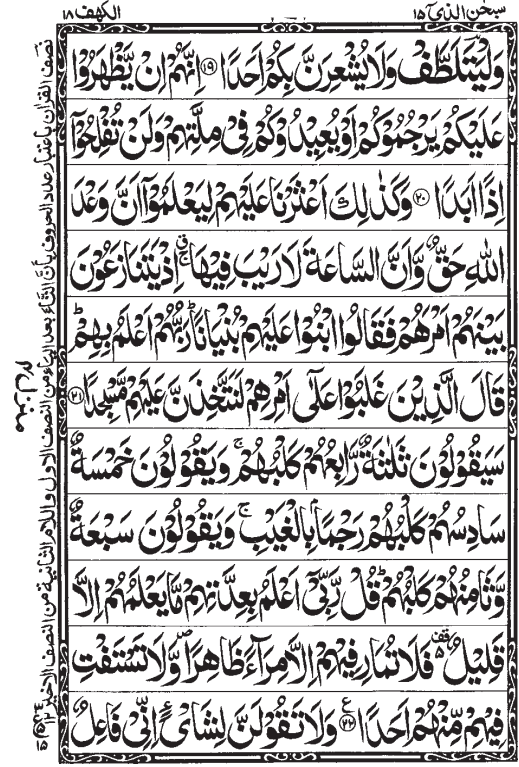 سبحٰن الذیٓ ١٥
الكهف ١٨
وَلْيَتَلَطَّفْ وَلَا يُشْعِرَنَّ بِكُمْ اَحَدًا ۝١٩ اِنَّهُمْ اِنْ يَّظْهَرُوْا
عَلَيْكُمْ يَرْجُمُوْكُمْ اَوْ يُعِيْدُوْكُمْ فِيْ مِلَّتِهِمْ وَلَنْ تُفْلِحُوْٓا
اِذًا اَبَدًا ۝٢٠ وَكَذٰلِكَ اَعْثَرْنَا عَلَيْهِمْ لِيَعْلَمُوْٓا اَنَّ وَعْدَ
اللّٰهِ حَقٌّ وَّاَنَّ السَّاعَةَ لَا رَيْبَ فِيْهَا ۚ اِذْ يَتَنَازَعُوْنَ
بَيْنَهُمْ اَمْرَهُمْ فَقَالُوا ابْنُوْا عَلَيْهِمْ بُنْيَانًا ؕ رَبُّهُمْ اَعْلَمُ بِهِمْ ؕ
قَالَ الَّذِيْنَ غَلَبُوْا عَلٰٓى اَمْرِهِمْ لَنَتَّخِذَنَّ عَلَيْهِمْ مَّسْجِدًا ۝٢١
سَيَقُوْلُوْنَ ثَلٰثَةٌ رَّابِعُهُمْ كَلْبُهُمْ ۚ وَيَقُوْلُوْنَ خَمْسَةٌ
سَادِسُهُمْ كَلْبُهُمْ رَجْمًۢا بِالْغَيْبِ ۚ وَيَقُوْلُوْنَ سَبْعَةٌ
وَّثَامِنُهُمْ كَلْبُهُمْ ؕ قُلْ رَّبِّيْٓ اَعْلَمُ بِعِدَّتِهِمْ مَّا يَعْلَمُهُمْ اِلَّا
قَلِيْلٌ ۫ فَلَا تُمَارِ فِيْهِمْ اِلَّا مِرَآءً ظَاهِرًا ۪ وَّلَا تَسْتَفْتِ
فِيْهِمْ مِّنْهُمْ اَحَدًا ۝٢٢ وَلَا تَقُوْلَنَّ لِشَايْءٍ اِنِّيْ فَاعِلٌ
نصف القران باعتبار عدد الحروف بأنّ التاء بعد الياء من النصف الاول واللام الثانية من النصف الاخير ١٢
منزل ٤